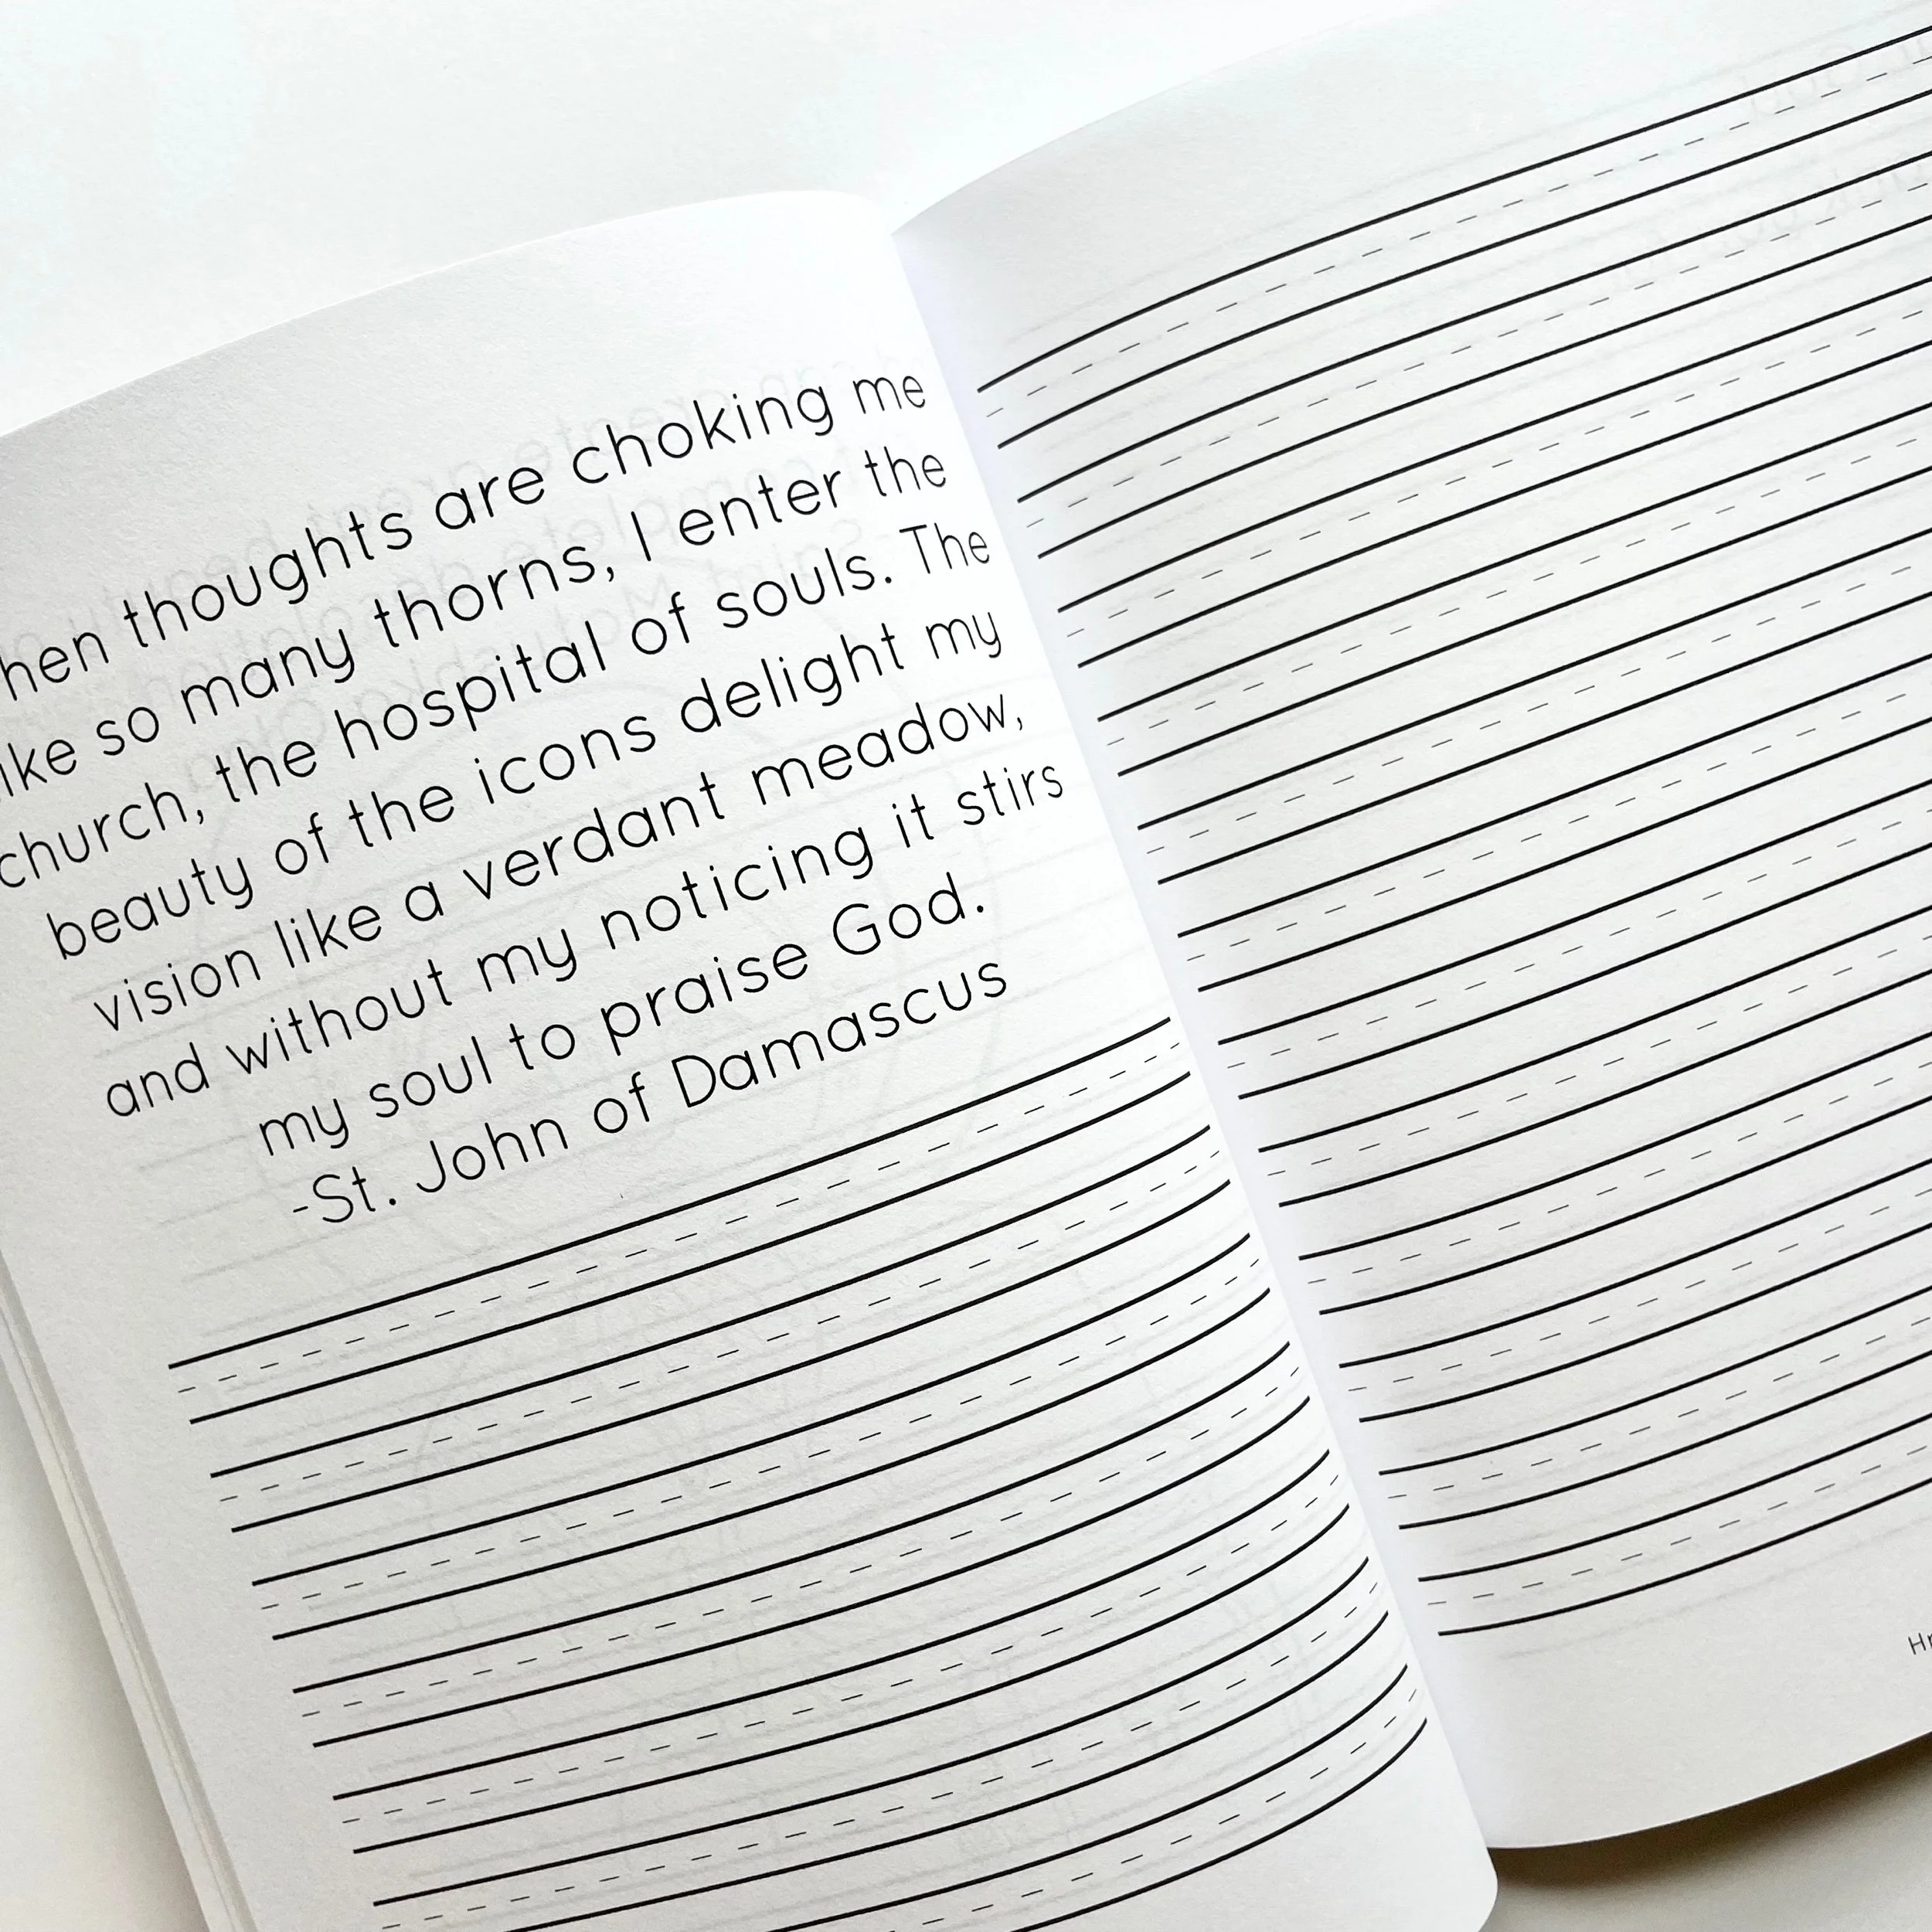 hen thoughts are choking me
ike so many thorns, I enter the
church, the hospital of souls. The
beauty of the icons delight my
vision like a verdant meadow,
and without my noticing it stirs
my soul to praise God.
-St. John of Damascus